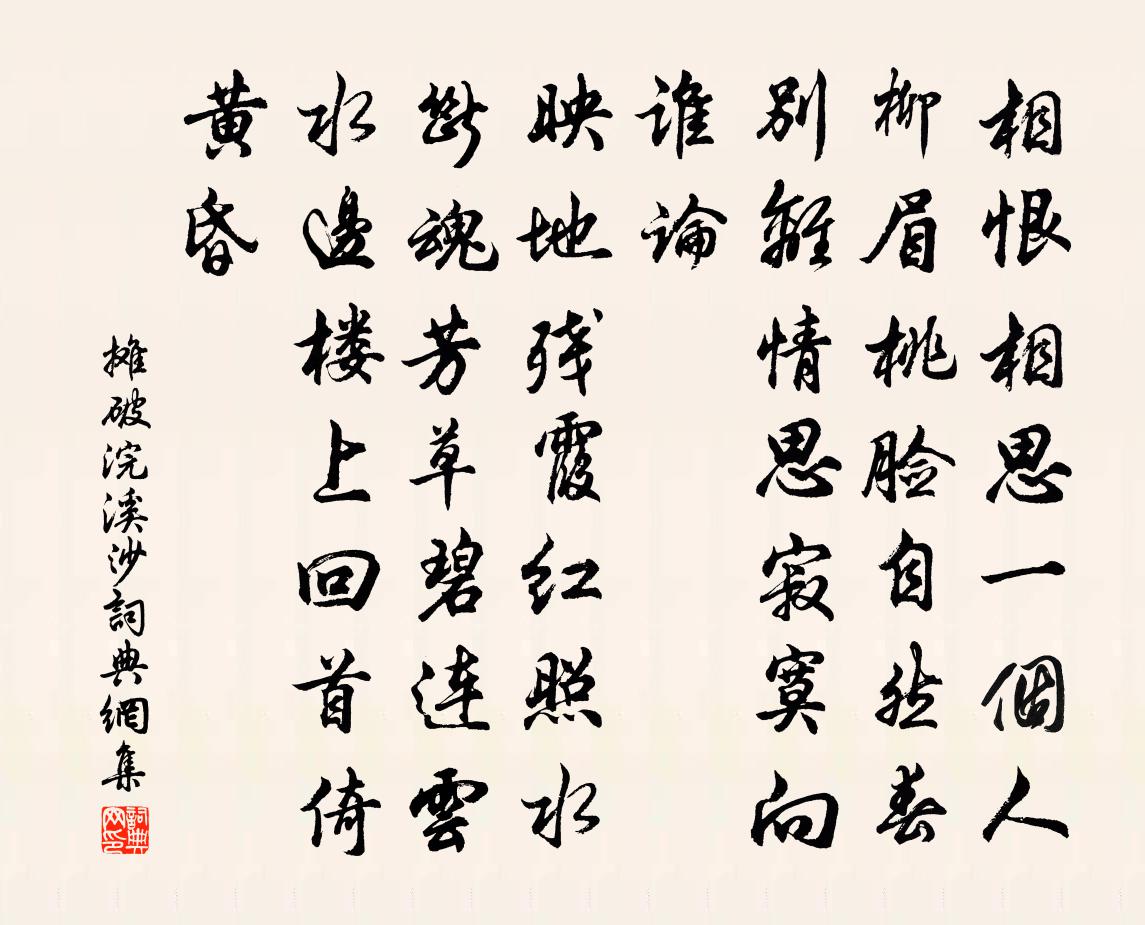 相恨相思一個人
柳眉桃脸自然春
別離情思寂寞向
誰論
映地残霞红照水
斷魂芳草碧連雲
水邊楼上回首倚
黄昏
摊破浣溪沙詞典網集
詞典网印